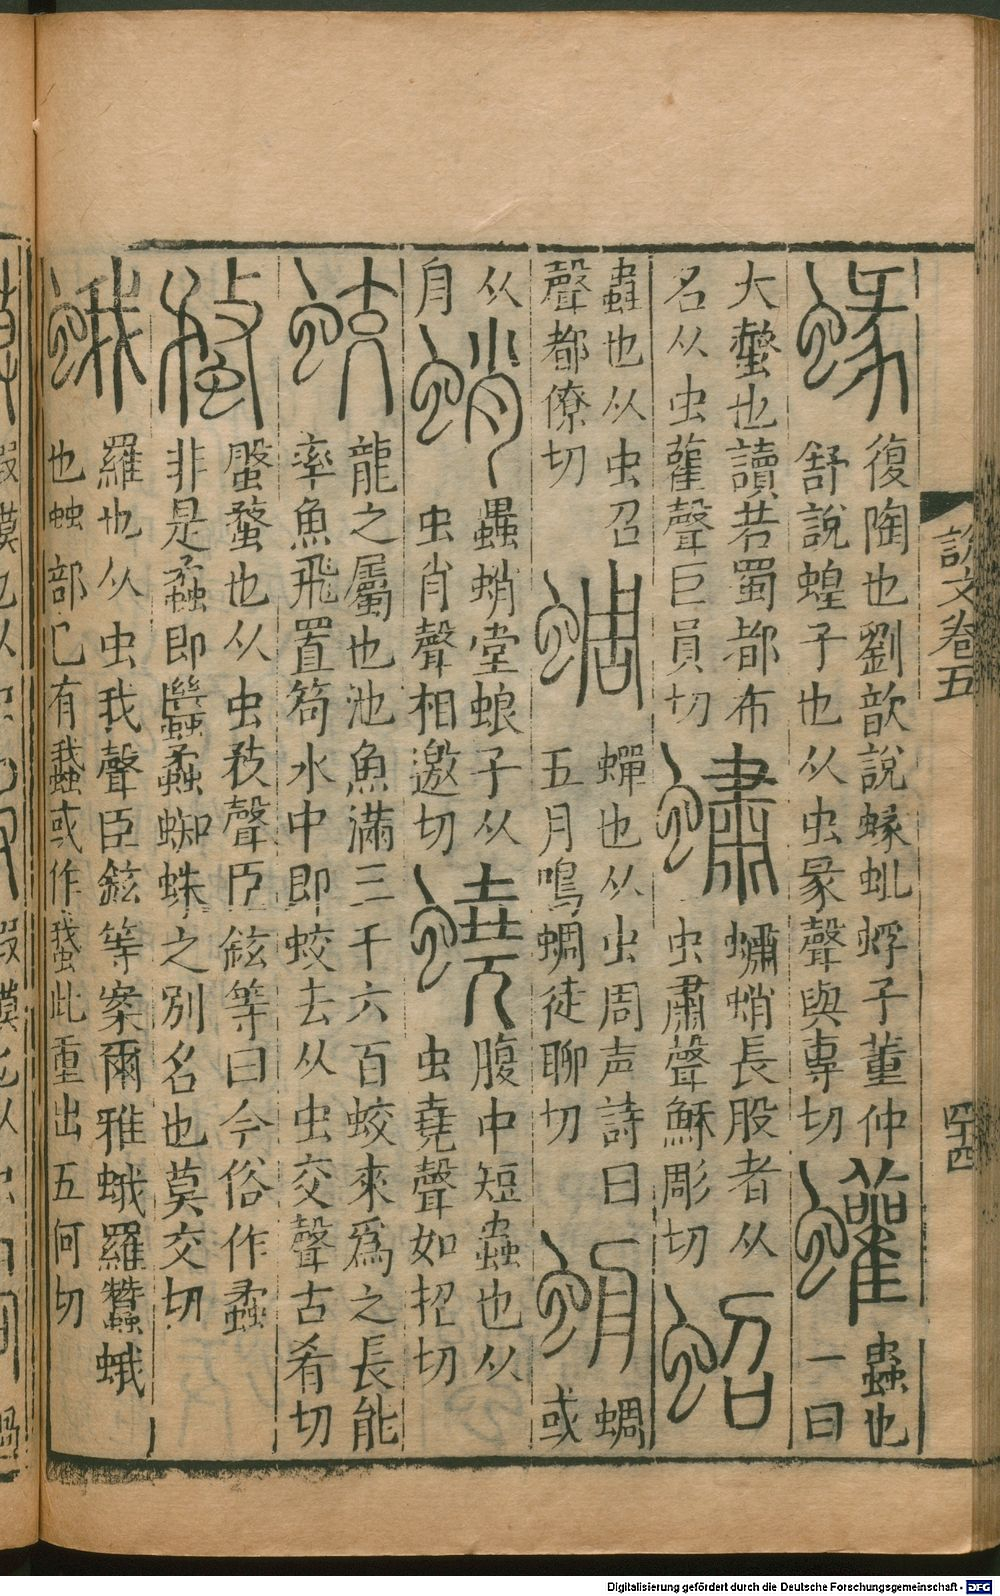 說文卷五
四十四
蝝 復陶也劉歆說蝝蚍蜉子董仲
舒說蝗子也从虫彖聲與專切
蠸 蟲也
一曰
大螫也讀若蜀都布
名从虫雚聲巨員切
蠨 蠨蛸長股者从
虫肅聲穌彫切
蛁
蟲也从虫召
聲都僚切
蜩 蟬也从虫周声詩曰
五月鳴蜩徒聊切
蜩
或
从
舟
蛸 蟲蛸堂蜋子从
虫肖聲相邀切
蟯 腹中短蟲也从
虫堯聲如招切
蛟 龍之屬也池魚滿三千六百蛟來爲之長能
率魚飛置笱水中即蛟去从虫交聲古肴切
盤蝥也从虫敄聲臣鉉等曰今俗作蟊
非是蟊即蠿蟊蜘蛛之別名也莫交切
蛾 羅也从虫我聲臣鉉等案爾雅蛾羅蠶蛾
也䖵部已有䖸或作䖸此重出五何切
Digitalisierung gefördert durch die Deutsche Forschungsgemeinschaft - DFG